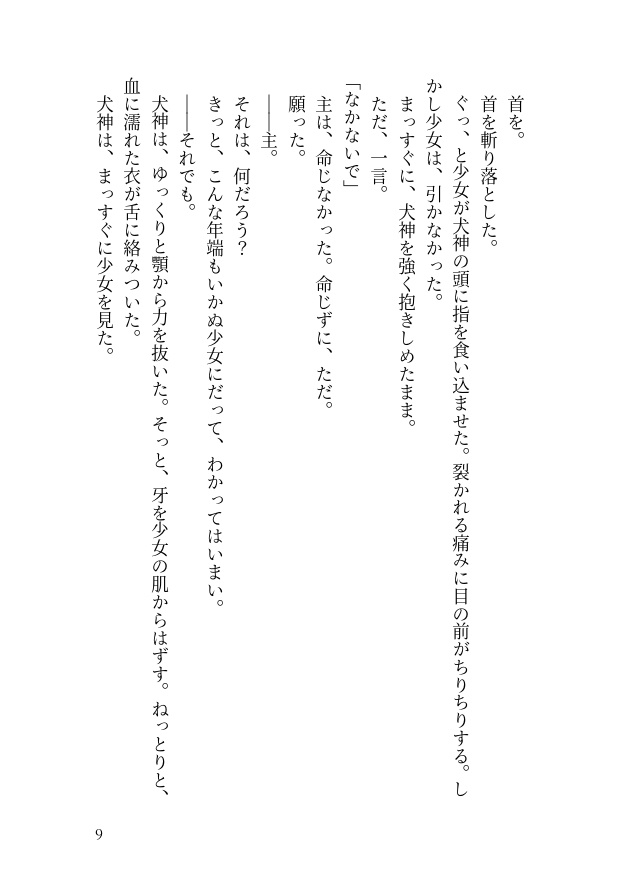 首を。
首を斬り落とした。
ぐっ、と少女が犬神の頭に指を食い込ませた。裂かれる痛みに目の前がちりちりする。し
かし少女は、引かなかった。
まっすぐに、犬神を強く抱きしめたまま。
ただ、一言。
「なかないで」
主は、命じなかった。命じずに、ただ。
願った。
――主。
それは、何だろう？
きっと、こんな年端もいかぬ少女にだって、わかってはいまい。
――それでも。
犬神は、ゆっくりと顎から力を抜いた。そっと、牙を少女の肌からはずす。ねっとりと、
血に濡れた衣が舌に絡みついた。
犬神は、まっすぐに少女を見た。
9